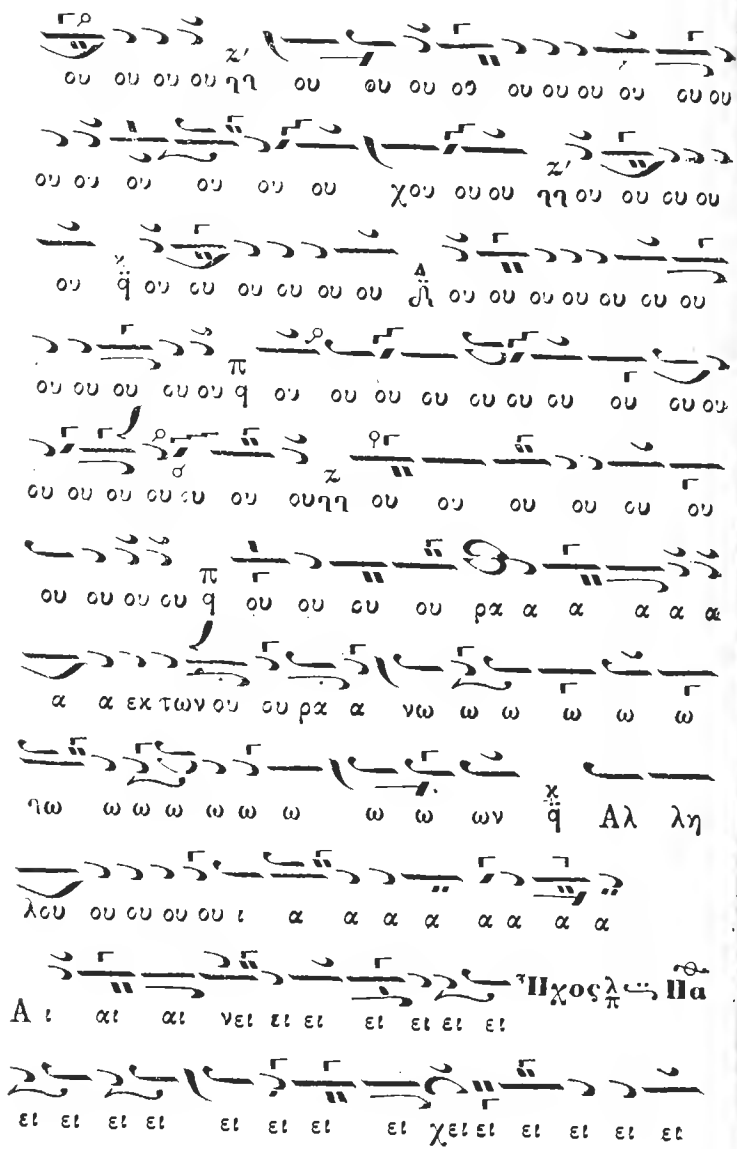 ου ου ου ου ηη ου ου ου ου ου ου ου ου ου ου
ου ου ου ου ου ου χου ου ου ηη ου ου ου ου
ου q ου ου ου ου ου ου ου ου ου ου ου ου ου ου
ου ου ου ου ου q ου ου ου ου ου ου ου ου ου ου
ου ου ου ου ου ου ου ηη ου ου ου ου ου ου
ου ου ου ου q ου ου ου ου ρα α α α α α
α α εκ των ου ου ρα α νω ω ω ω ω ω
ηω ω ω ω ω ω ω ω ω ων q Αλ λη
λου ου ου ου ου ι α α α α α α α α
Α ι αι αι νει ει ει ει ει ει ει Ἦχος λ π Πα
ει ει ει ει ει ει ει ει χει ει ει ει ει ει